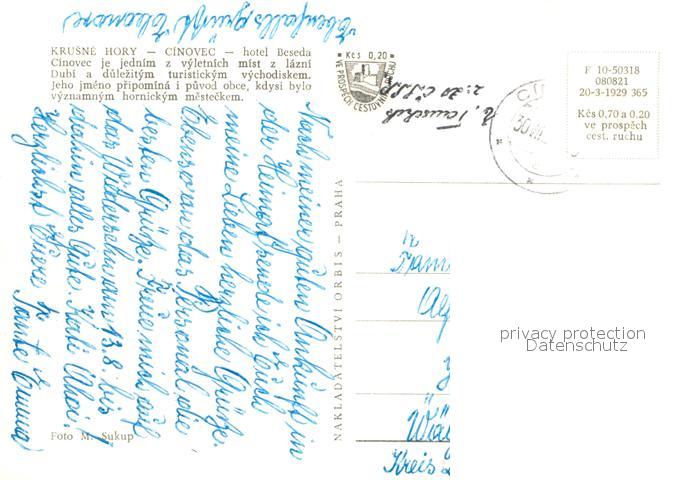 Ebenfalls grüßt Eleonore
KRUŠNÉ HORY — CÍNOVEC — hotel Beseda
Cínovec je jedním z výletních míst z lázní
Dubí a důležitým turistickým východiskem.
Jeho jméno připomíná i původ obce, kdysi bylo
významným hornickým městečkem.
Kčs 0,20
VE PROSPĚCH CESTOVNÍHO RUCHU
F 10-50318
080821
20-3-1929 365
Kčs 0,70 a 0.20
ve prospěch
cest. ruchu
Nach meiner guten Ankunft in
der Heimat sendet ich Euch
meine Lieben herzliche Grüße.
Ebenso an das Personal die
besten Grüße. Freue mich auf
das Wiedersehn am 13.8. bis
dahin alles Gute. Karli Ahoi!
Herzlichst Eure
Tante Emma
NAKLADATELSTVÍ ORBIS — PRAHA
Fam
Wä
Kreis
privacy protection
Datenschutz
Foto M. Sukup